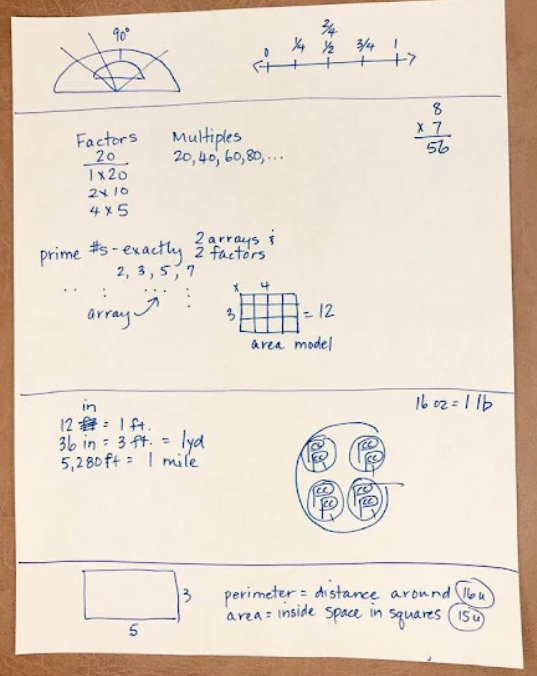 90°
0 1/4 2/4 1/2 3/4 1
8
x 7
56
Factors Multiples
20 20, 40, 60, 80, ...
1 x 20
2 x 10
4 x 5
prime #s - exactly 2 arrays &
2 factors
2, 3, 5, 7
array
x 4
3 = 12
area model
16 oz = 1 lb
in
12 = 1 ft.
36 in = 3 ft. = 1yd
5,280 ft = 1 mile
3
5
perimeter = distance around 16u
area = inside space in squares 15u